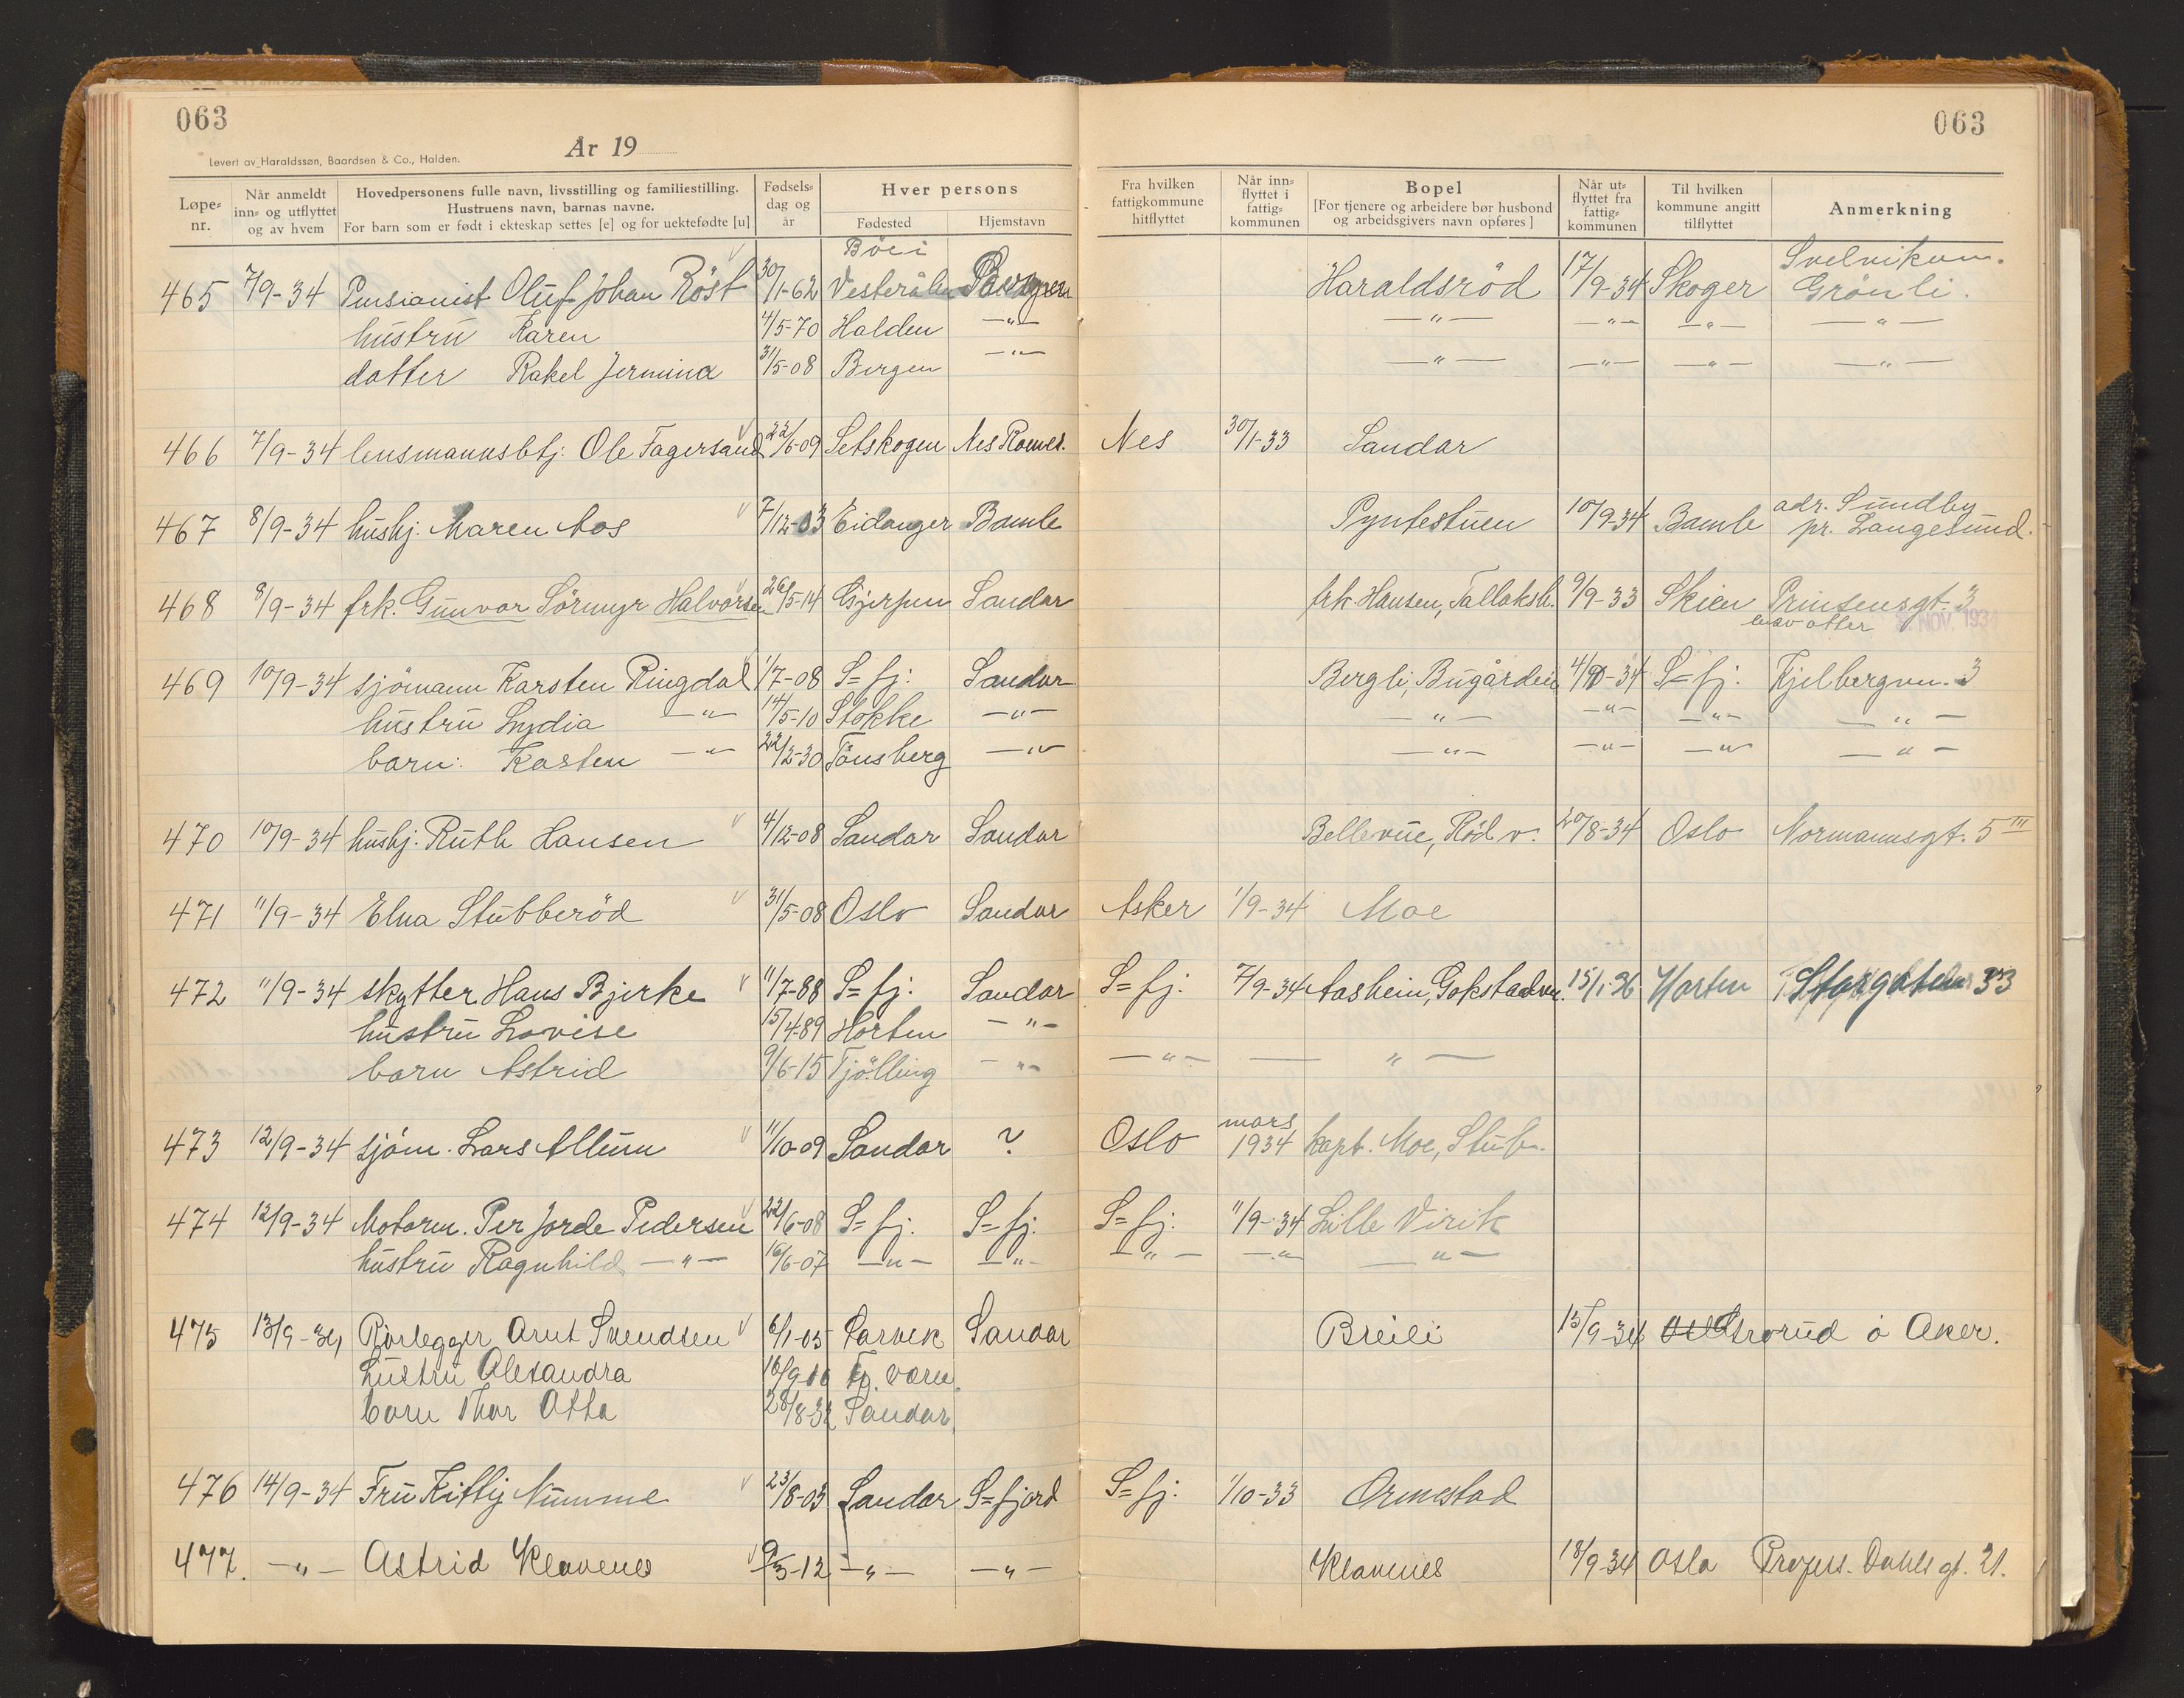 063
063
År 19
Levert av Haraldssøn, Baardsen & Co., Halden.
Løpe-nr. Når anmeldt inn- og utflyttet og av hvem Hovedpersonens fulle navn, livsstilling og familiestilling. Hustruens navn, barnas navne. For barn som er født i ekteskap settes [e] og for uektefødte [u] Fødsels-dag og år Hver persons Fødested Hjemstavn Fra hvilken fattigkommune hitflyttet Når inn-flyttet i fattig-kommunen Bopel [For tjenere og arbeidere bør husbond og arbeidsgivers navn opføres] Når ut-flyttet fra fattig-kommunen Til hvilken kommune angitt tilflyttet Anmerkning
Böei Svelvikvn.
465 7/9-34 Pensionist Oluf Johan Röst 30/1-62 Vesterålen Bergen Haraldsrød 17/9-34 Skoger Grönli.
hustru Karen 4/5-70 Halden -"- -"- -"- -"- -"-
datter Rakel Jermina 31/5-08 Bergen -"- -"- -"- -"- -"-
466 7/9-34 lensmannsbtj. Ole Fagersand 22/6-09 Setskogen Nes Romer. Nes 30/1-33 Sandar
467 8/9-34 hushj. Maren Aos 7/12-03 Eidanger Bamle Pyntestuen 10/9-34 Bamle adr. Sundby
pr. Langesund.
468 8/9-34 frk. Gunvor Sörmyr Halvorsen 26/5-14 Gjerpen Sandar frk. Hansen, Tallaksh. 9/9-33 Skien Prinsensgt. 3
NOV. 1934
469 10/9-34 sjömann Karsten Ringdal 1/7-08 S=fj: Sandar Bergli, Bugården 4/9-34 S=fj. Kjelbergvn. 3
hustru Lydia -"- 14/5-10 Stokke -"- -"- -"- -"- -"-
barn: Karsten -"- 22/2-30 Tönsberg -"- -"- -"- -"- -"-
470 10/9-34 hushj. Ruth Hansen 4/12-08 Sandar Sandar Bellevue, Rød v. 20/8-34 Oslo Normannsgt. 5 III
471 11/9-34 Elna Stubberöd 31/5-08 Oslo Sandar Asker 1/9-34 Moe
472 11/9-34 skytter Hans Bjerke 11/7-88 S=fj: Sandar S=fj. 7/9-34 Aasheim, Gokstadvn. 15/1-36 Horten Storgaten 33
hustru Lovise 15/4-89 Horten -"-
barn Astrid 9/6-15 Tjölling -"- -"- -"-
473 12/9-34 sjöm. Lars Allum 11/10-09 Sandar ? Oslo mars 1934 kapt. Moe, Stub.
474 12/9-34 Motorm. Per Jorde Pedersen 22/6-08 S=fj. S=fj. S=fj. 11/9-34 Lille Virik
hustru Ragnhild -"- 16/6-07 -"- -"- -"- -"- -"-
475 13/9-34 Rörlegger Arnt Svendsen 6/1-05 Larvik Sandar Breili 15/9-34 Grorud ö Aker.
hustru Alexandra 16/9-10 Tj. varn.
barn Thor Otto 28/8-32 Sandar
476 14/9-34 Fru Kitty Numme 23/8-03 Sandar S=fjord S=fj: 1/10-33 Ormestad
477. -"- Astrid Klavenes 9/5-12 -"- -"- Klavenes 18/9-34 Oslo Profess. Dahls gt. 21.